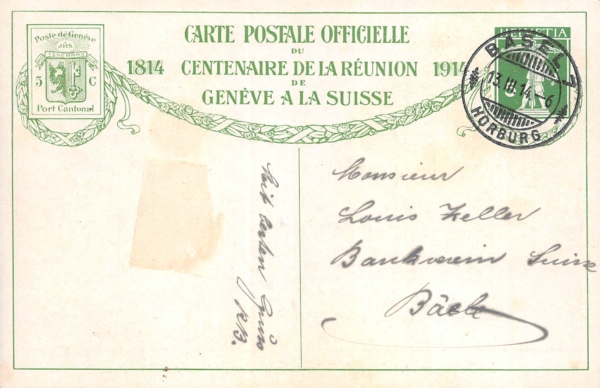 Poste de Genève
5 C
Port Cantonal
CARTE POSTALE OFFICIELLE
DU
1814 CENTENAIRE DE LA RÉUNION 1914
DE
GENÈVE A LA SUISSE
HELVETIA
BASEL 7
13.III.14.-6
HORBURG
Mit besten Gruss
Monsieur
Louis Zeller
Bankverein Suisse
Bâle